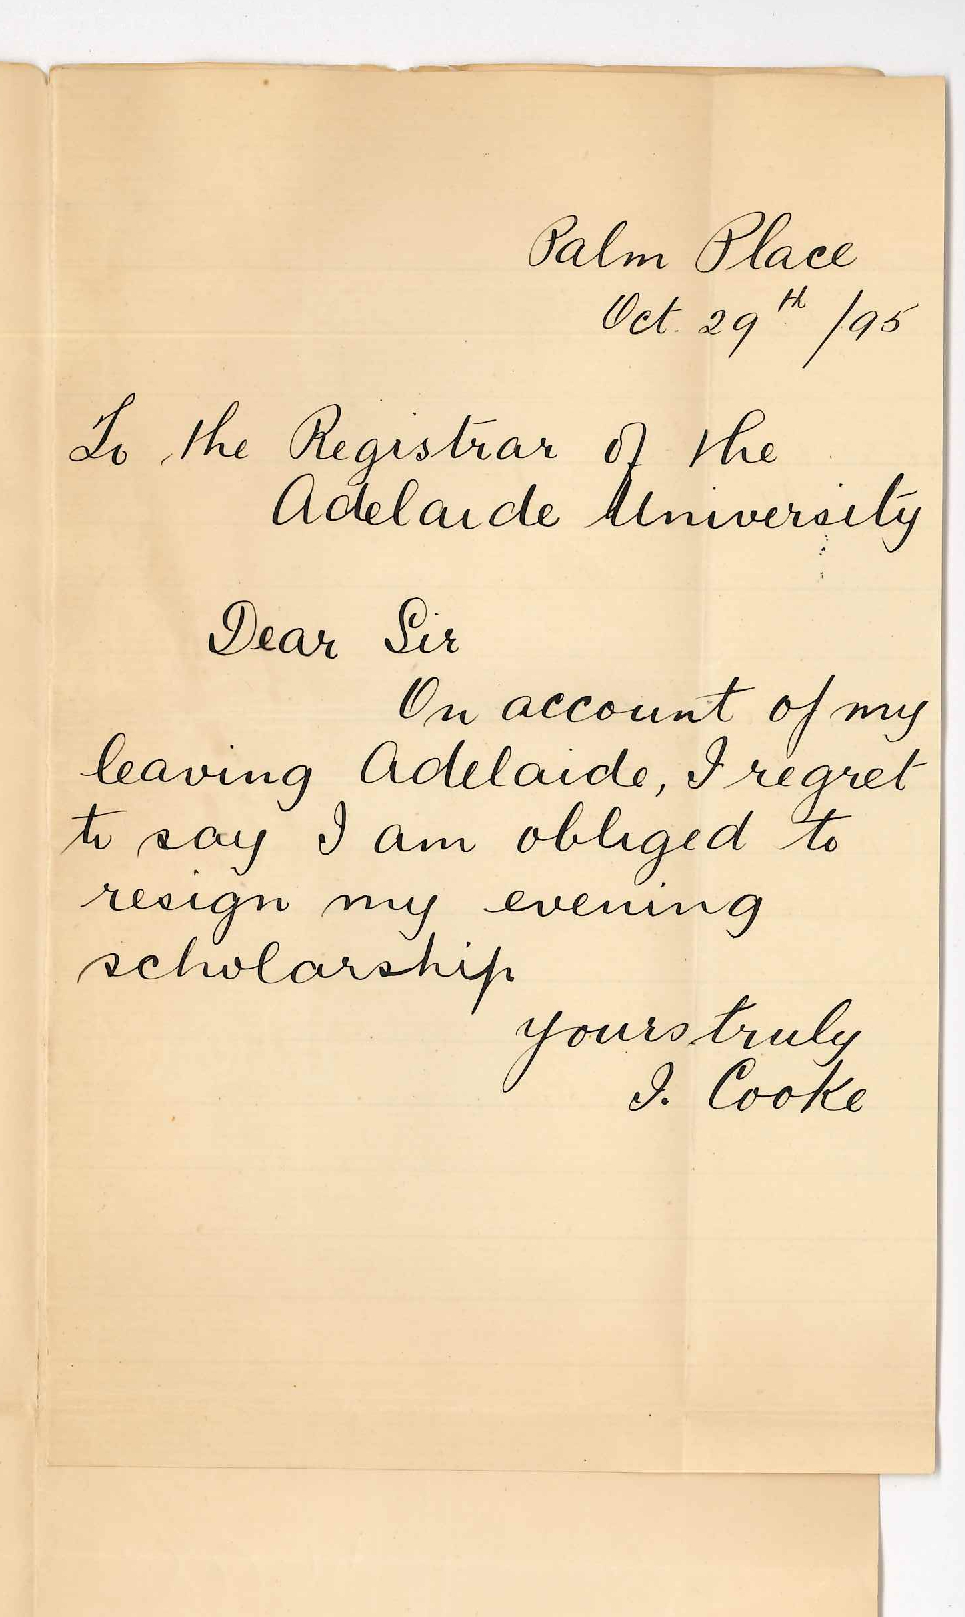 Palm Place
Oct. 29th /95
To the Registrar of the
Adelaide University
Dear Sir
On account of my
leaving Adelaide, I regret
to say I am obliged to
resign my evening
scholarship
yours truly
I. Cooke